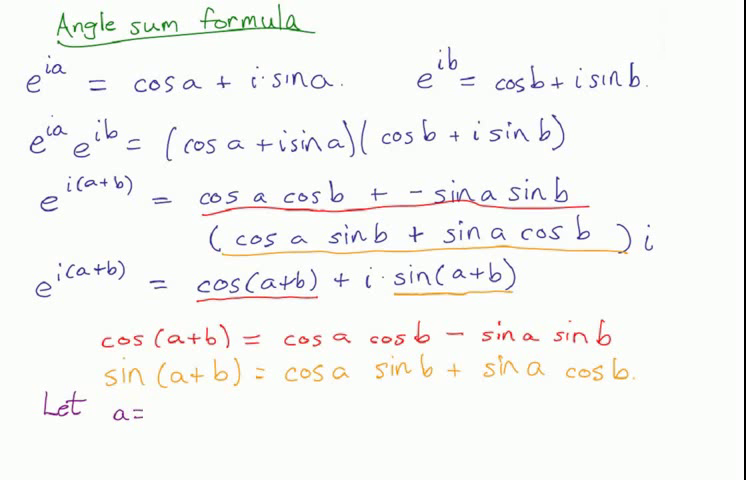 Angle sum formula
e^{ia} = cos a + i · sin a. e^{ib} = cos b + i sin b.
e^{ia} e^{ib} = (cos a + i sin a)(cos b + i sin b)
e^{i(a+b)} = cos a cos b + - sin a sin b
(cos a sin b + sin a cos b) i
e^{i(a+b)} = cos(a+b) + i · sin(a+b)
cos (a+b) = cos a cos b - sin a sin b
sin (a+b) = cos a sin b + sin a cos b.
Let a =